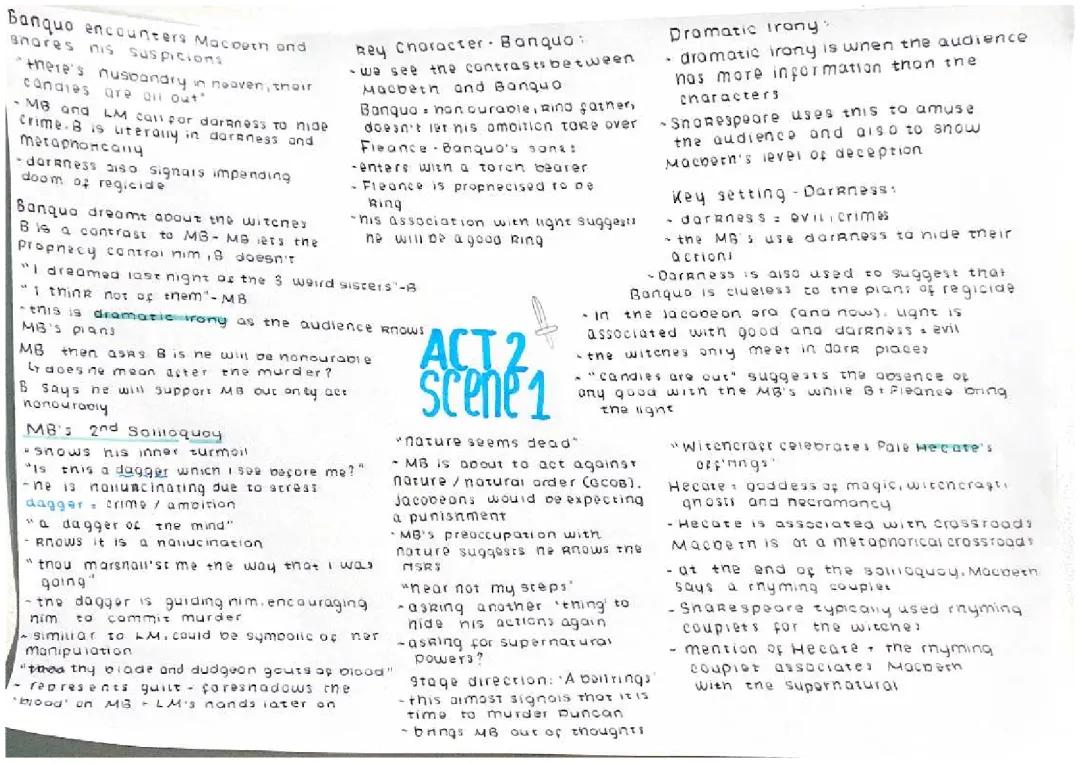 Banquo encounters Macbeth and
shares his suspicions
"there's husbandry in heaven, their
candles are all out"
- MB and LM call for darkness to hide
crime. B is literally in darkness and
metaphorically
- darkness also signals impending
doom of regicide
Banquo dreamt about the witches
B is a contrast to MB - MB lets the
prophecy control him, B doesn't
"I dreamed last night of the 3 weird sisters" - B
"I think not of them" - MB
- this is dramatic irony as the audience knows
MB's plans
MB then asks B is he will be honourable
↳ does he mean after the murder?
B says he will support MB but only act
honourably
MB's 2nd Soliloquy
- shows his inner turmoil
"Is this a dagger which I see before me?"
- he is hallucinating due to stress
dagger = crime / ambition
"a dagger of the mind"
- knows it is a hallucination
"thou marshall'st me the way that I was
going"
- the dagger is guiding him, encouraging
him to commit murder
- similiar to LM, could be symbolic of her
manipulation
thy blade and dudgeon gouts of blood"
- represents guilt - foreshadows the
'blood' on MB + LM's hands later on
Key Character - Banquo:
- we see the contrasts between
Macbeth and Banquo
Banquo = honourable, kind father,
doesn't let his ambition take over
Fleance - Banquo's son:
- enters with a torch bearer
- Fleance is prophecised to be
king
- his association with light suggests
he will be a good king
ACT 2
scene 1
"nature seems dead"
- MB is about to act against
nature / natural order (GCOB).
Jacobeans would be expecting
a punishment
- MB's preoccupation with
nature suggests he knows the
risks
"hear not my steps"
- asking another 'thing' to
hide his actions again
- asking for supernatural
powers?
stage direction: 'A bell rings'
- this almost signals that it is
time to murder Duncan
- brings MB out of thoughts
Dramatic Irony:
- dramatic irony is when the audience
has more information than the
characters
- Shakespeare uses this to amuse
the audience and also to show
Macbeth's level of deception
Key setting - Darkness:
- darkness = evil, crimes
- the MB's use darkness to hide their
actions
- Darkness is also used to suggest that
Banquo is clueless to the plans of regicide
- In the Jacobean era (and now), light is
associated with good and darkness = evil
- the witches only meet in dark places
- "candles are out" suggests the absence of
any good with the MB's while B + Fleance bring
the light
"Witchcraft celebrates Pale Hecate's
off'rings"
Hecate = goddess of magic, witchcraft,
ghosts and necromancy
- Hecate is associated with crossroads
Macbeth is at a metaphorical crossroads
- at the end of the soliloquy, Macbeth
says a rhyming couplet
- Shakespeare typically used rhyming
couplets for the witches
- mention of Hecate + the rhyming
couplet associates Macbeth
with the supernatural